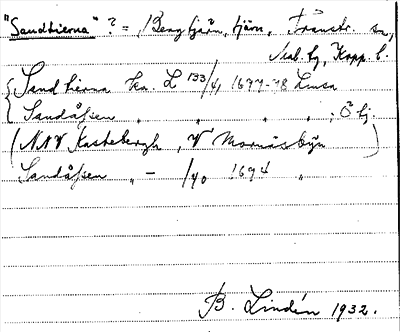 "Sandtierna" ? = Bergtjärn, tjärn, Transtr. sn,
Mal. tg, Kopp. l.
Sandtierna kn. L 133/41 1697-98 Lmsa
Sandåhsen " " " " ; Ö hj.
(NNV Kastebergh, V Mornäsbÿn)
Sandåhsen " - 1/40 1694 "
B. Lindén 1932.